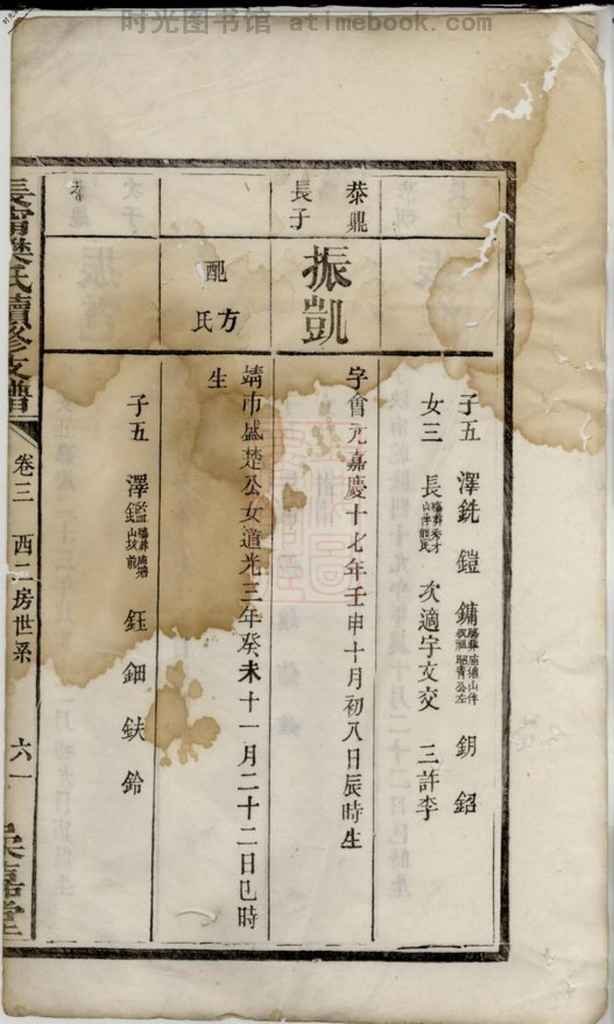 时光图书馆 atimebook.com
子五 澤銑 鎧 鏞 鈅 鉊
女三 長 次適字文交 三許李
恭鼎
長子
振凱
字會元嘉慶十七年壬申十月初八日辰時生
配方氏
靖市盛楚公女道光三年癸未十一月二十二日巳時
生
子五 澤鑑 鈺 鈿 鈇 鈴
長甯樊氏續修支譜
卷三 西二房世系 六一